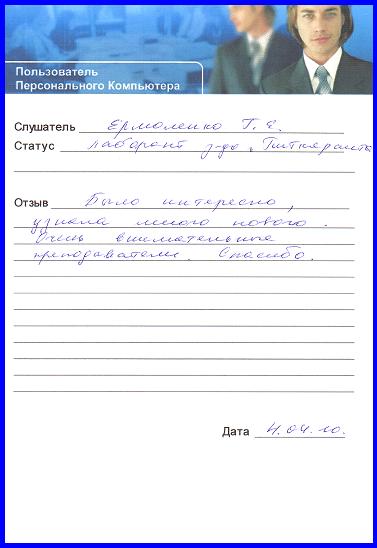 Пользователь
Персонального Компьютера
Слушатель Ермоленко Т. Е.
Статус лаборант з-да
Отзыв Было интересно,
узнала много нового.
Очень внимательные
преподаватели. Спасибо.
Дата 4.04.10.